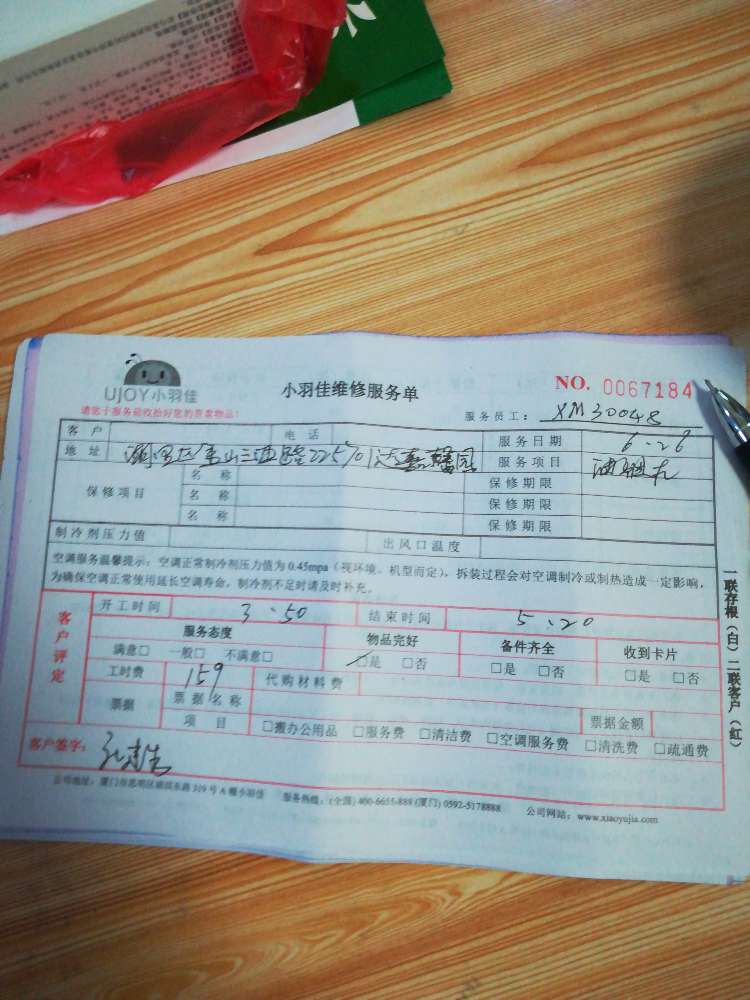 UJOY小羽佳
小羽佳维修服务单
NO. 0067184
请您于服务前收拾好您的贵重物品!
服务员工: XM30048
客户 电话 服务日期 6.26
地址 服务项目
保修项目 名称 保修期限
名称 保修期限
名称 保修期限
制冷剂压力值 出风口温度
空调服务温馨提示:空调正常制冷剂压力值为0.45mpa(视环境、机型而定),拆装过程会对空调制冷或制热造成一定影响,
为确保空调正常使用延长空调寿命,制冷剂不足时请及时补充。
客户评定
开工时间 3.50 结束时间 5.20
服务态度 物品完好 备件齐全 收到卡片
满意□ 一般□ 不满意□ □是 □否 □是 □否 □是 □否
工时费 159 代购材料费
票据 票据名称 票据金额
项目 □搬办公用品 □服务费 □清洁费 □空调服务费 □清洗费 □疏通费
客户签字:
服务热线:(全国)400-6655-889 (厦门)0592-5178888
公司网站:www.xiaoyujia.com
一联存根(白)二联客户(红)